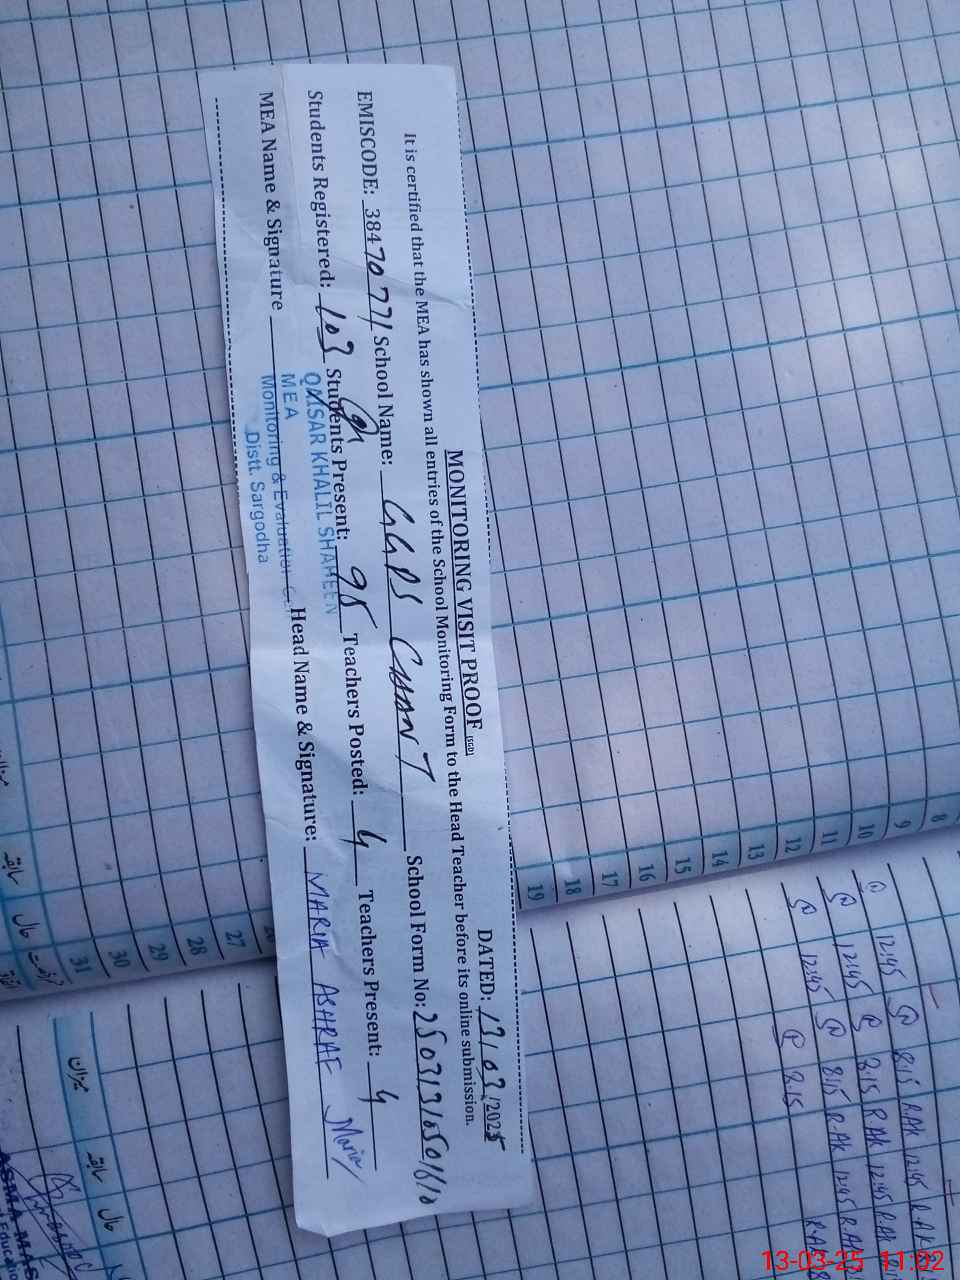 MONITORING VISIT PROOF (SGD)
DATED: 13/03/2025
It is certified that the MEA has shown all entries of the School Monitoring Form to the Head Teacher before its online submission.
EMISCODE: 38470771 School Name: GGPS CHAN T School Form No:
Students Registered: 103 Students Present: 95 Teachers Posted: 4 Teachers Present: 4
MEA Name & Signature Head Name & Signature: MARIA ASHRAF Maria
QAISAR KHALIL SHAHEEN
MEA
Monitoring & Evaluation
Distt. Sargodha
8
9
10 12:45 8:15 RAK 12:45
11 12:45 8:15 RAK 12:45 RAK
12 12:45 8:15 RAK 12:45 RAK
13 8:15
14
15
16
17
18
19
27
28
29
30
31
میزان
سابقہ
حال
13-03-25 11:02